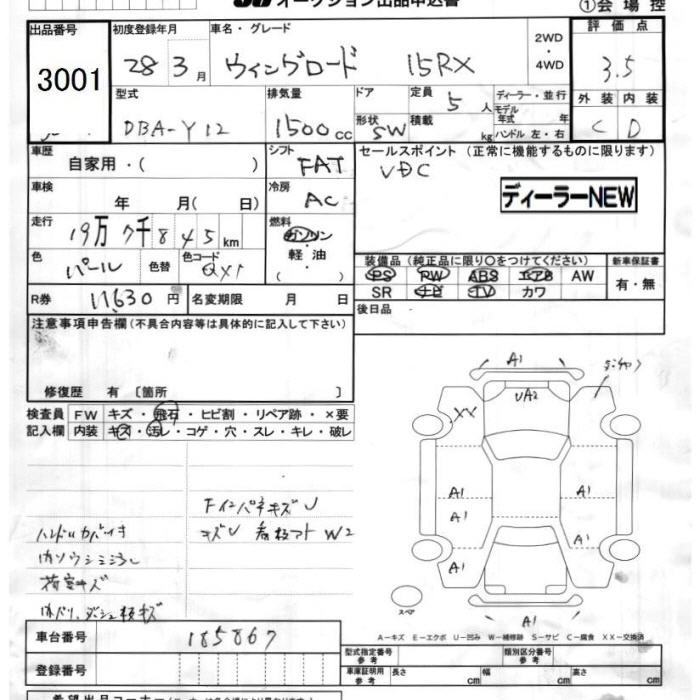 オークション出品申込書
①会場控
出品番号 3001
初度登録年月 28 3月
車名・グレード ウイングロード 15RX 2WD・4WD
評価点 3.5
外装 C 内装 D
型式 DBA-Y12
排気量 1500cc
ドア 形状 SW
定員 5人 積載 kg
ディーラー・並行
モデル 年式 年
ハンドル 左・右
車歴 自家用・( )
シフト FAT
セールスポイント(正常に機能するものに限ります)
VDC
ディーラーNEW
車検 年 月( 日)
冷房 AC
走行 19万 7千 845km
燃料 ガソリン・軽油・( )
色 パール 色替 色コード QX1
装備品(純正品に限り○をつけてください)
PS PW ABS エアB AW
SR ナビ TV カワ
新車保証書 有・無
R券 11630円 名変期限 月 日
後日品
注意事項申告欄(不具合内容等は具体的に記入して下さい)
修復歴 有 〔箇所 〕
検査員記入欄
FW キズ・飛石・ヒビ割・リペア跡・×要
内装 キズ・汚レ・コゲ・穴・スレ・キレ・破レ
FインパネキズU
キズU 看板アト W2
ハンドルカバー付
荷室キズ
A1
UA2
XX
A1 A1
A1
A1
A1
A1
スペア
A1
A-キズ E-エクボ U-凹み W-補修跡 S-サビ C-腐食 XX-交換済
車台番号 185867
登録番号
型式指定番号 参考 類別区分番号 参考
車庫証明用 参考 長さ cm 幅 cm 高さ cm
希望出品コーナー